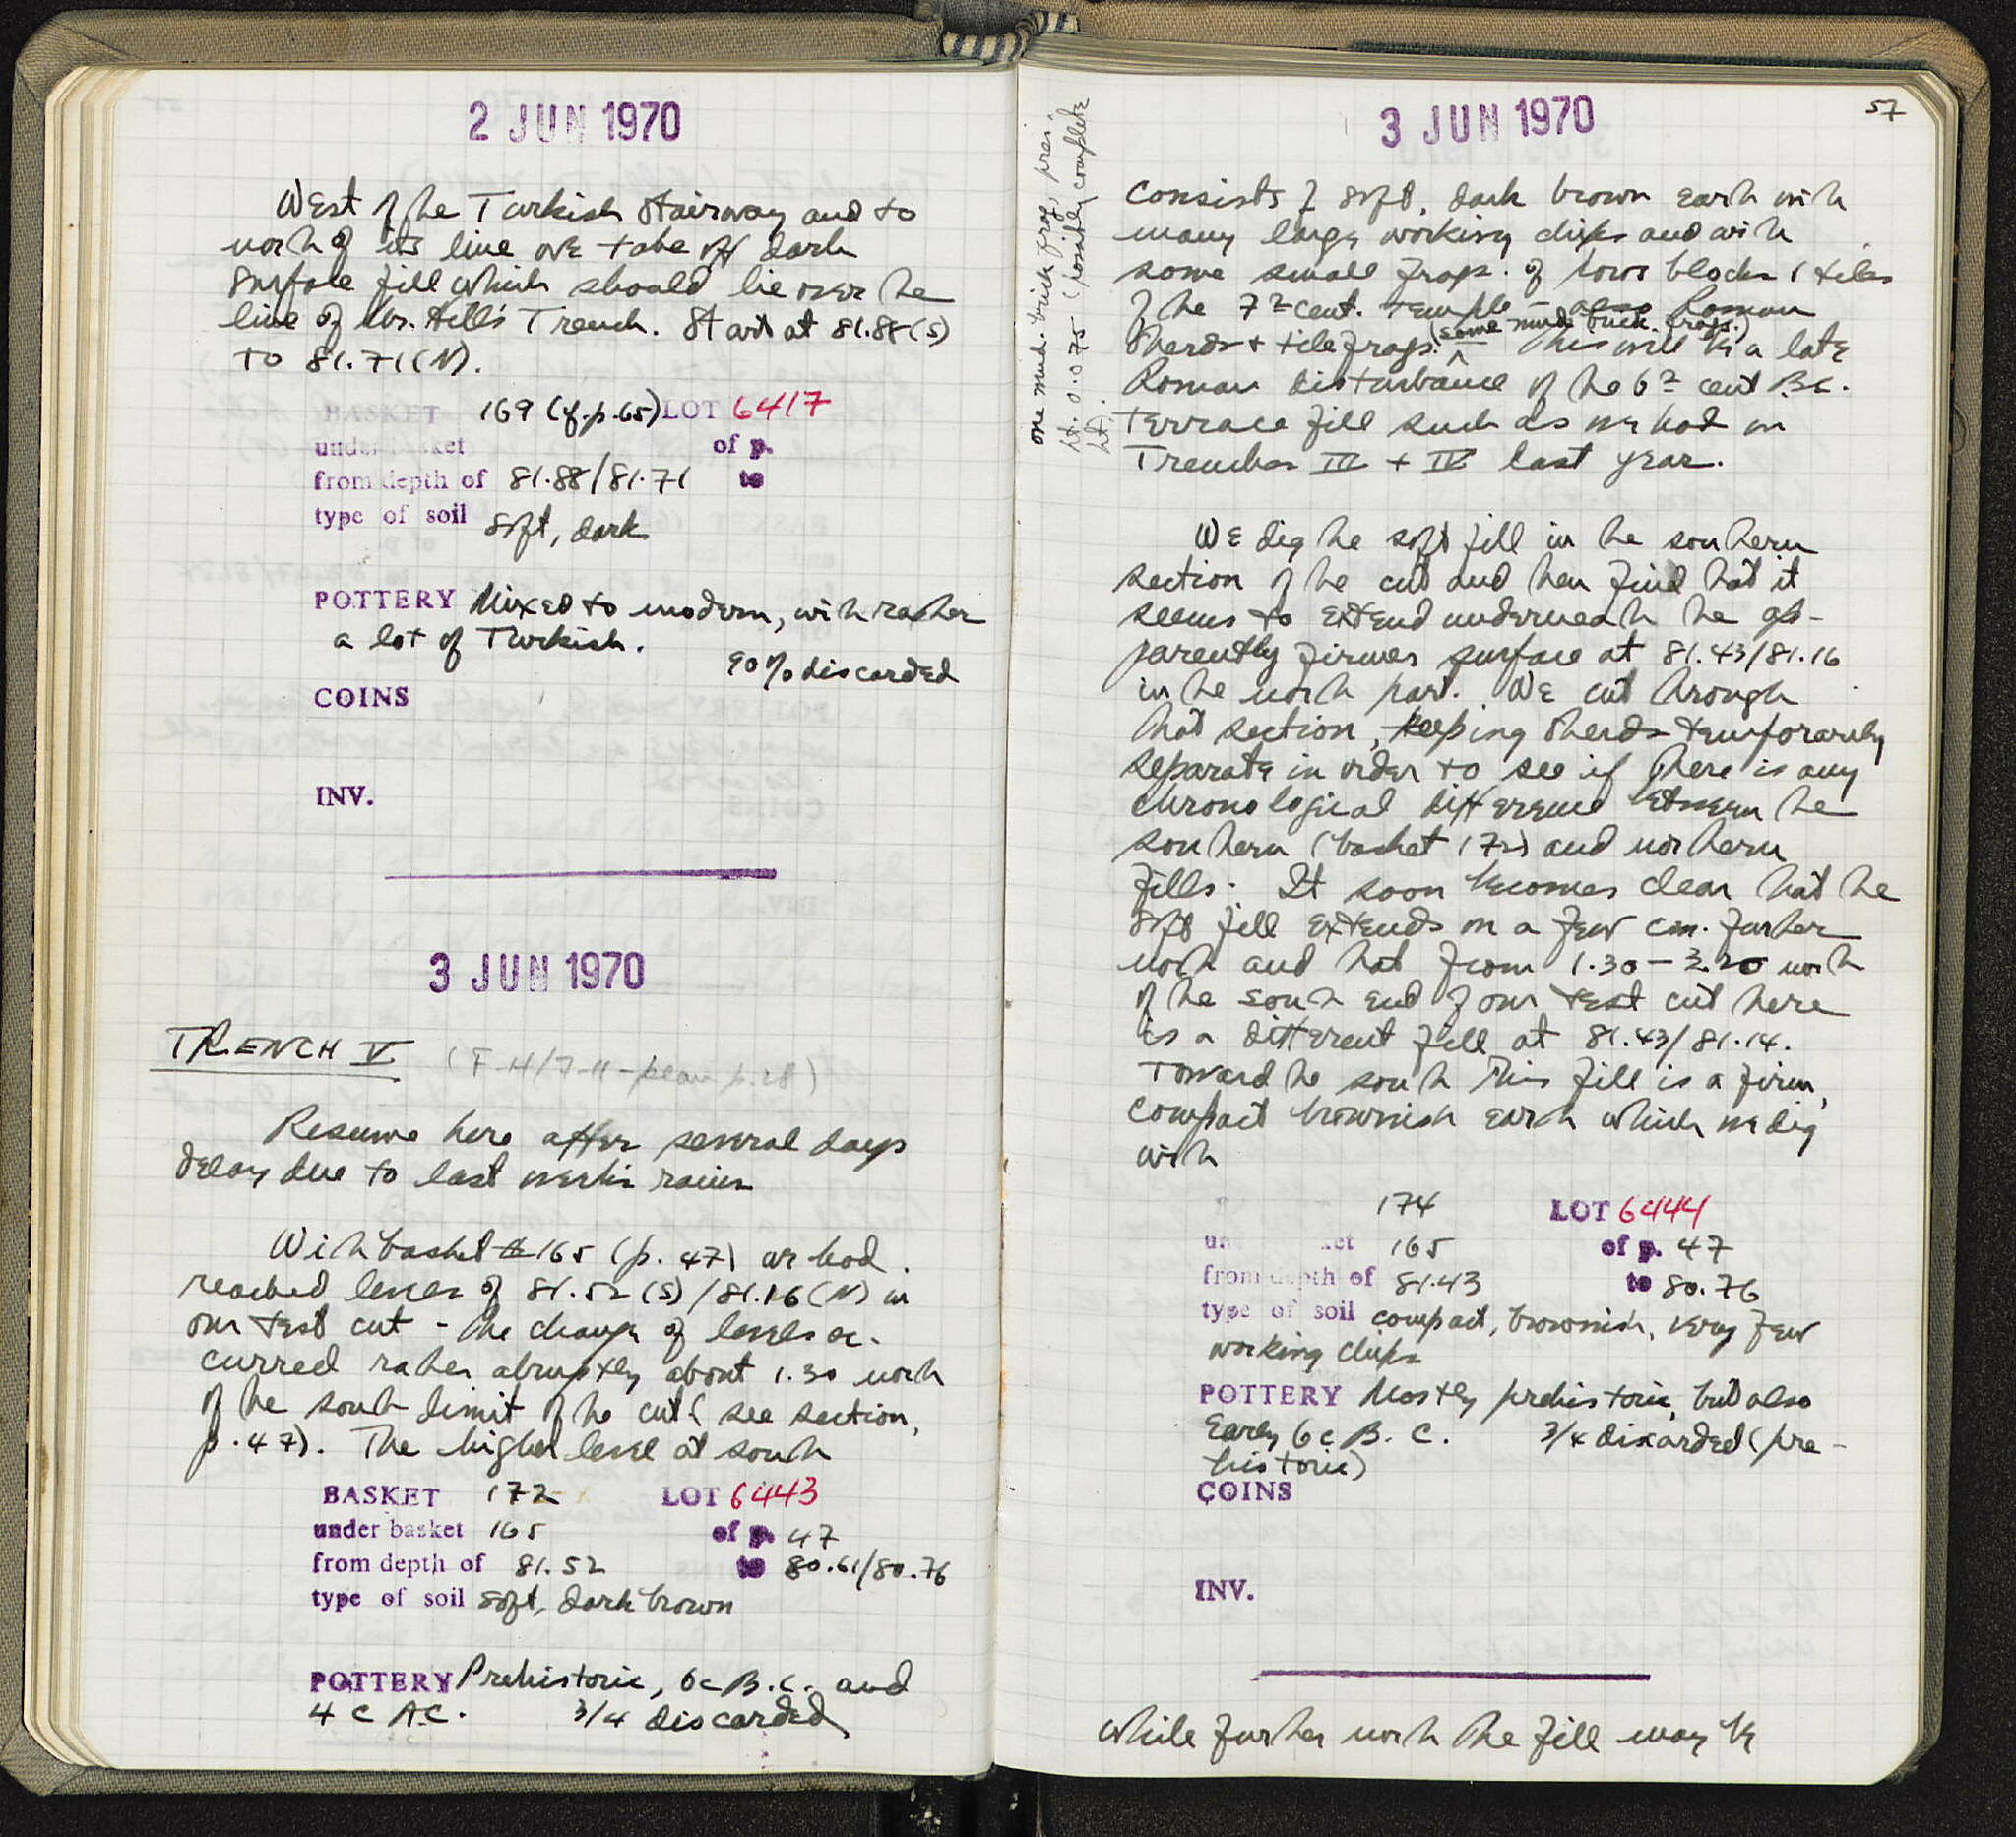 2 JUN 1970
West of the Turkish Stairway and to
north of its line we take off dark
surface fill which should lie over the
line of Mr. Hill's Trench. Starts at 81.88 (S)
to 81.71 (N).
BASKET 169 (cf. p. 65) LOT 6417
under basket of p.
from depth of 81.88/81.71 to
type of soil soft, dark
POTTERY Mixed to modern, with rather
a lot of Turkish.
90% discarded
COINS
INV.
3 JUN 1970
TRENCH V (F-H/7-11 - plan p. 28)
Resume here after several days
delay due to last week's rains
With basket #165 (p. 47) we had
reached levels of 81.52 (S) / 81.16 (N) in
our test cut - the change of levels oc-
curred rather abruptly about 1.30 north
of the south limit of the cut (see section,
p. 47). The higher level at south
BASKET 172 LOT 6443
under basket 165 of p. 47
from depth of 81.52 to 80.61/80.76
type of soil soft, dark brown
POTTERY Prehistoric, 6c B.C. and
4 C A.C. 3/4 discarded
3 JUN 1970
57
one mud-brick frag. pres.
ht. 0.075 (possibly complete
ht.).
consists of soft, dark brown earth with
many large working chips and with
some small frags. of poros blocks & tiles
of the 7th cent. temple - also Roman
sherds + tile frags. (some mud-brick frags.) This will be a late
Roman disturbance of the 6th cent B.C.
Terrace fill such as we had in
Trenches III + IV last year.
We dig the soft fill in the southern
section of the cut and then find that it
seems to extend underneath the ap-
parently firmer surface at 81.43/81.16
in the north part. We cut through
that section, keeping sherds temporarily
separate in order to see if there is any
chronological difference between the
southern (basket 172) and northern
fills. It soon becomes clear that the
soft fill extends on a few cm. further
north and that from 1.30 - 3.20 north
of the south end of our test cut there
is a different fill at 81.43/81.14.
Toward the south this fill is a firm,
compact brownish earth which we dig
with
174 LOT 6444
under basket 165 of p. 47
from depth of 81.43 to 80.76
type of soil compact, brownish, very few
working chips
POTTERY Mostly prehistoric, but also
Early 6c B.C. 3/4 discarded (pre-
historic)
COINS
INV.
while further north the fill may be